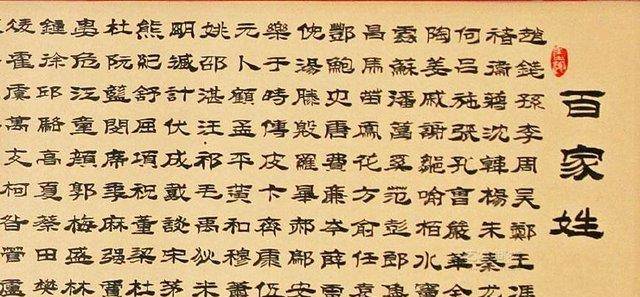 百家姓
趙錢孫李周吳鄭王馮
褚衛蔣沈韓楊朱秦尤
何呂施張孔曹嚴華金
陶姜戚謝鄒喻柏水竇
雲蘇潘葛奚范彭郎魯
昌馬苗鳳花方俞任袁
酆鮑史唐費廉岑薛雷
倪湯滕殷羅畢郝鄔安
樂于時傅皮卞齊康伍
元卜顧孟平黃和穆蕭
姚邵湛汪祁毛禹狄米
明臧計伏成戴談宋茅
熊紀舒屈項祝董梁杜
杜阮藍閔席季麻強賈
婁危江童顏郭梅盛林
鍾徐邱駱高夏蔡田樊
凌霍虞萬支柯昝管盧